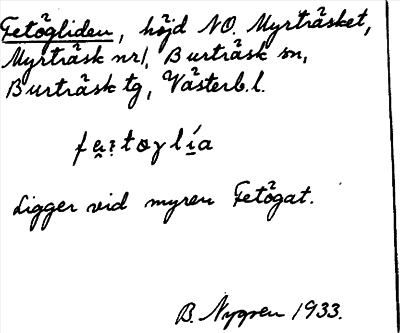 Fetögliden, höjd NO. Myrträsket,
Myrträsk nr1, Burträsk sn,
Burträsk tg, Västerb.l.
Ligger vid myren Fetögat.
B. Nygren 1933.